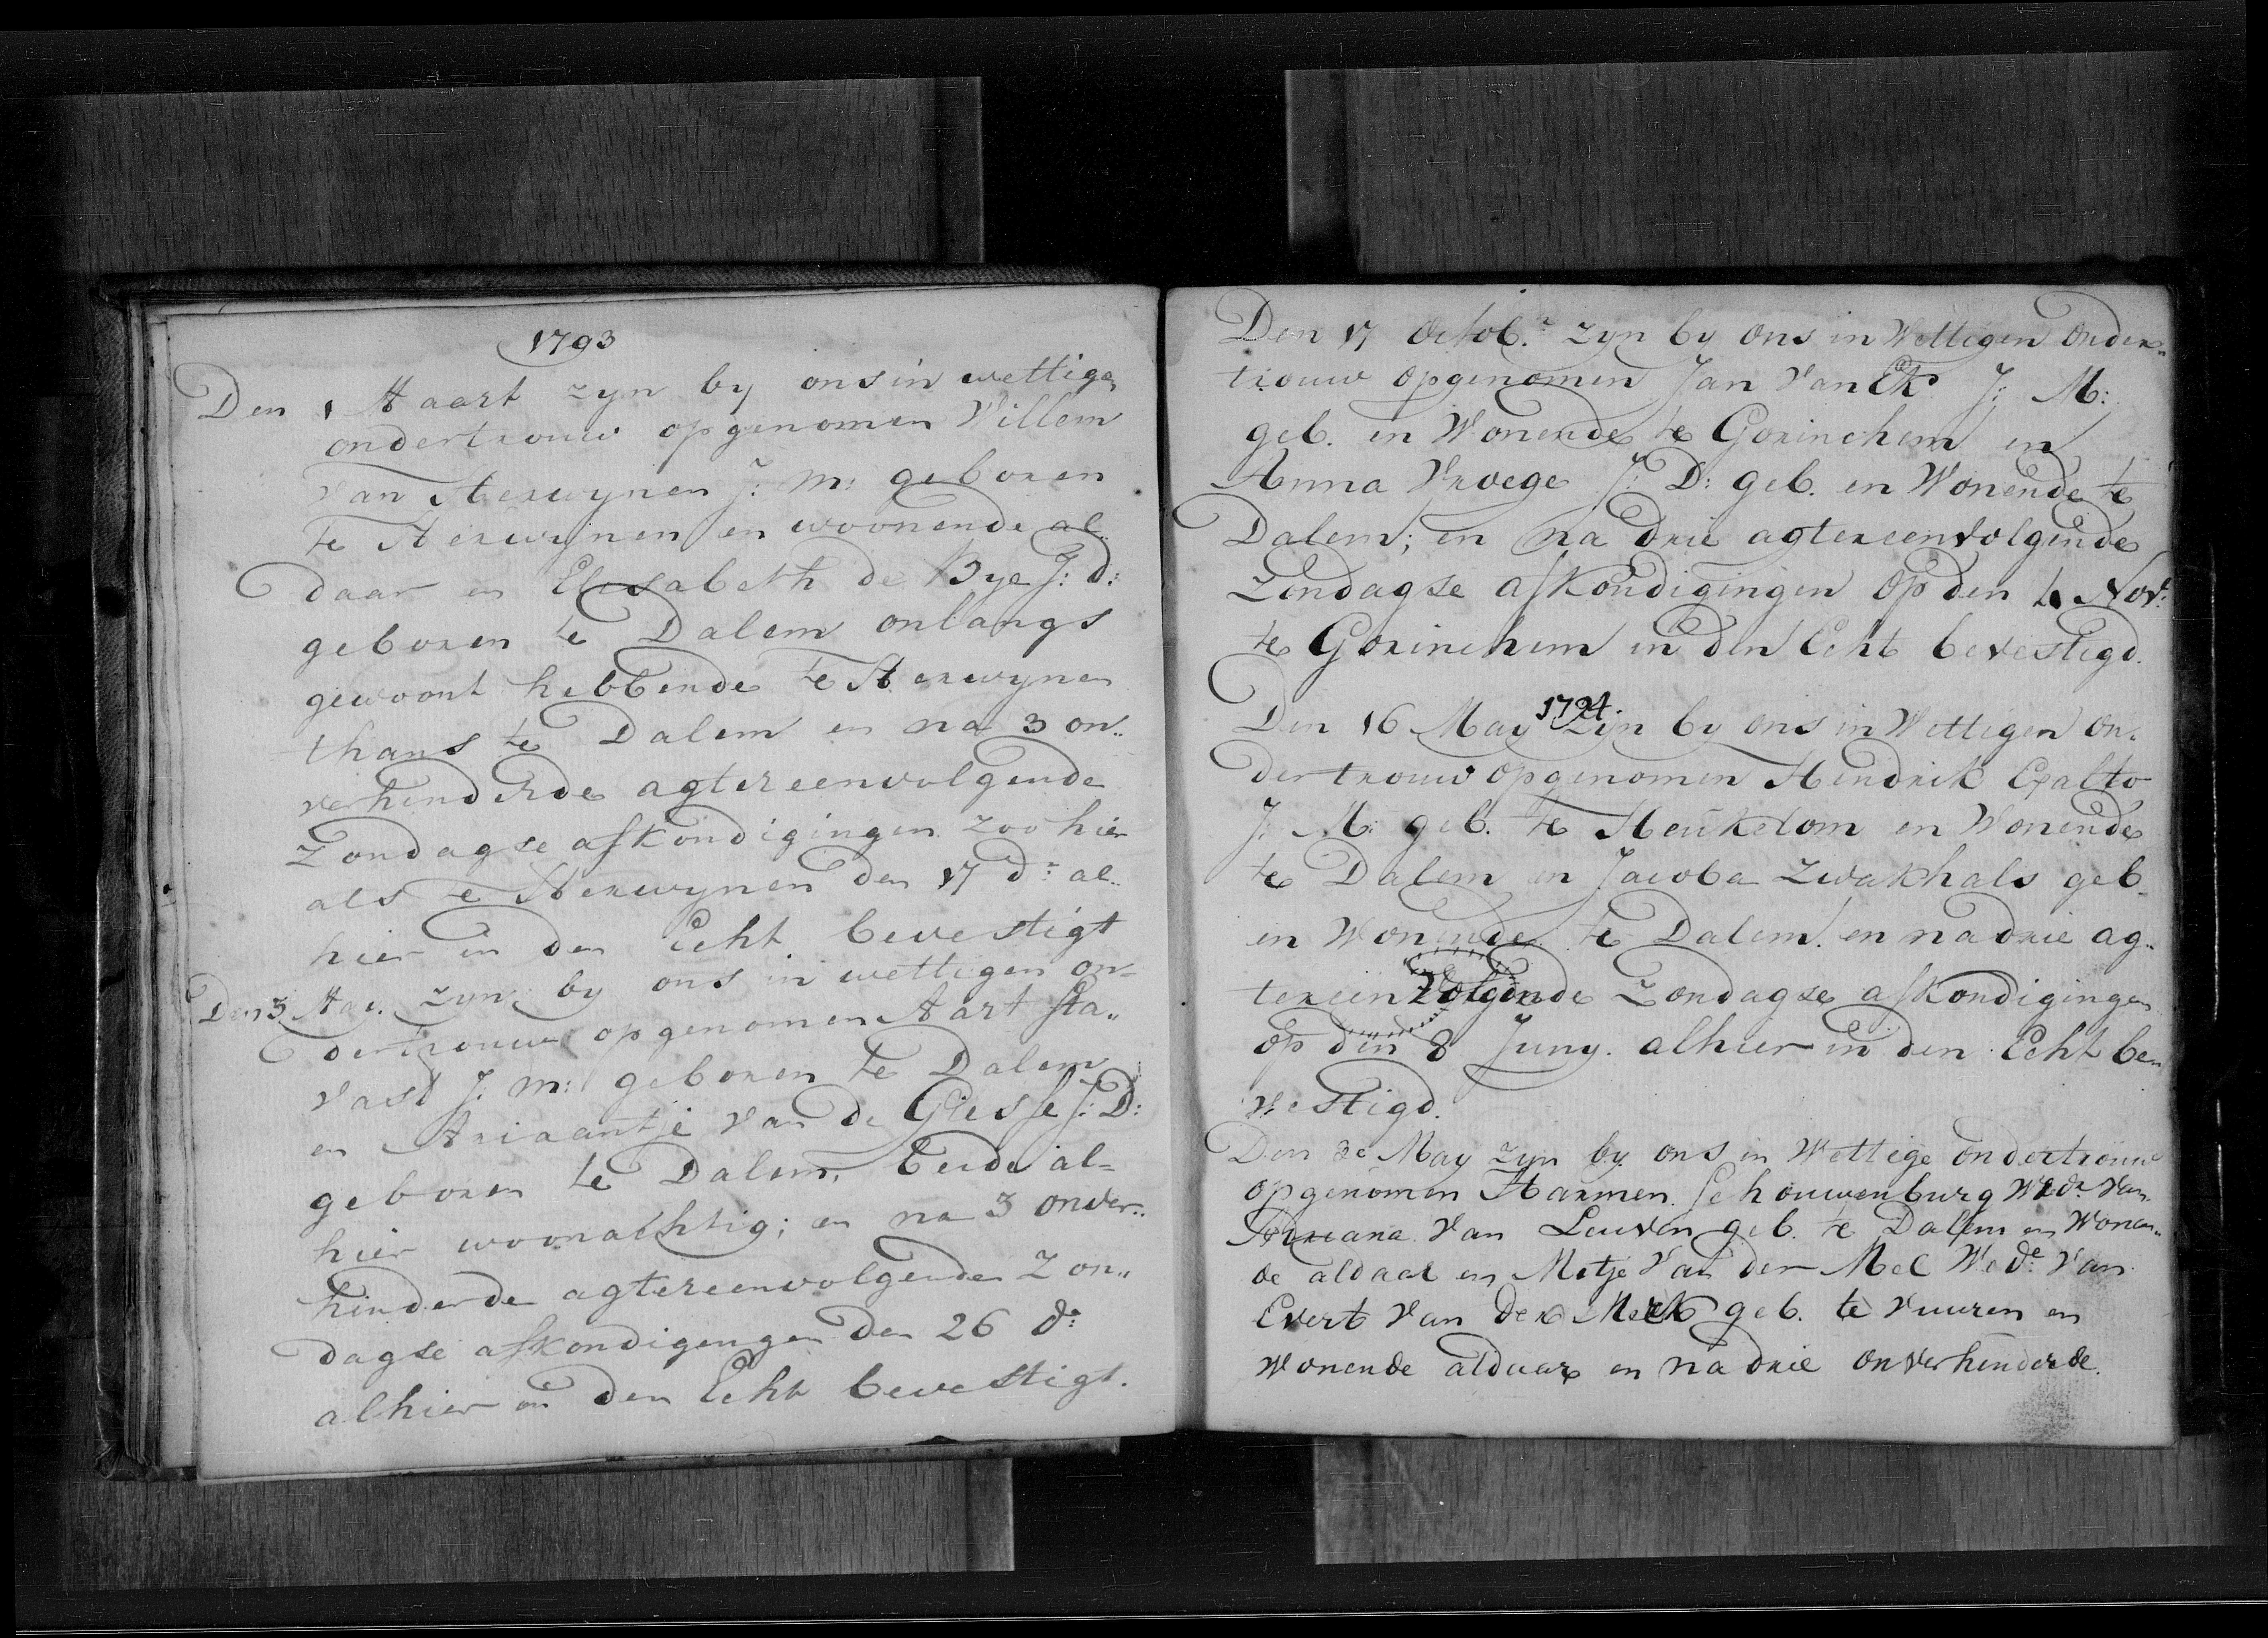 1793
Den 1 Maart zyn by ons in wettige
ondertrouw opgenomen Willem
van Herwynen J: m: geboren
te Herwynen en woonende al„
daar en Elisabeth de Bye J: d:
geboren te Dalem onlangs
gewoont hebbende te Herwynen
thans te Dalem en na 3 on„
verhinderde agtereenvolgende
Zondagse afkondigingen zoo hier
als te Herwynen den 17 do: al„
hier in den Echt bevestigt
Den 3 May. zyn by ons in wettigen on=
dertrouw opgenomen Aart Sta„
vast J: m: geboren te Dalem
en Ariaantje van de Giesse J: D:
geboren te Dalem, beide al=
hier woonachtig; en na 3 onver„
hinderde agtereenvolgende Zon„
dagse afkondigengen den 26 do:
alhier in den Echt bevestigt.
Den 17 Octobr: zyn by ons in Wettigen onder„
trouw opgenomen Jan Van Ek J: M:
geb. en Wonende te Gorinchem en
Anna Vroege J: D: geb. en Wonende te
Dalem; en na drie agtereenvolgende
Zondagse afkondigingen op den Nov:
te Gorinchem in den Echt bevestigd.
1794.
Den 16 May zyn by ons in Wettigen on„
dertrouw opgenomen Hendrik Exalto
J: M: geb. te Heukelom en Wonende
te Dalem en Jacoba Zwakhals geb
en Wonende te Dalem. en na drie ag„
tereenvolgende Zondagse afkondigingen
op den 8 Juny. alhier in den Echt be„
vestigd.
Den May zyn by ons in Wettige ondertrouw
opgenomen Harmen Schouwenburg Wedr. Van
Adriana Van Leuven geb. te Dalem en Wonen„
de aldaar en Metje Van der Mel Wede: Van
Evert Van der Merk geb. te Vuuren en
Wonende aldaar en na drie onverhinderde.